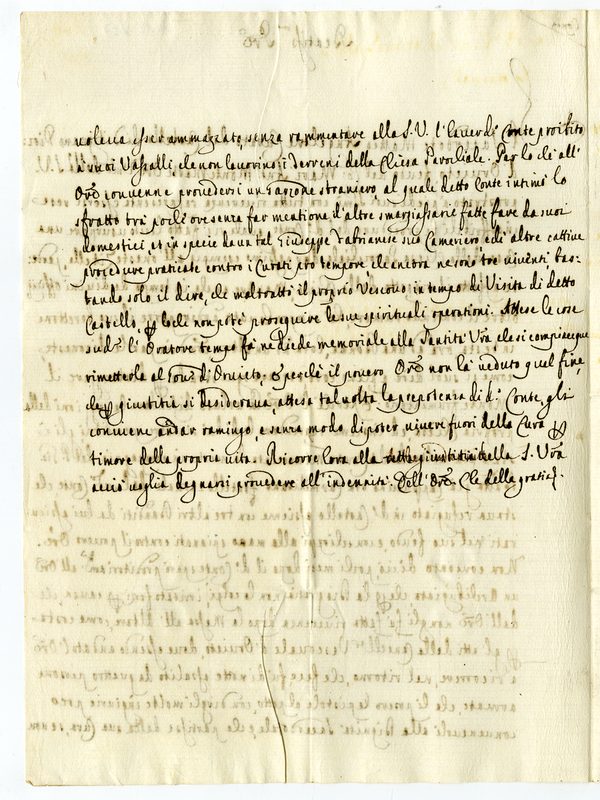 voleva esser ammazzato, senza rammentare alla S. V. l'haver d.º Conte proibito
a suoi Vassalli, che non lavorino i terreni della Chiesa Parochiale. Per lo che all'
Ore convenne provedersi un Garzone straniero, al quale detto Conte intimò lo
sfratto trà poche ore senza far mentione d'altre smargiassarie fatte fare da suoi
domestici, et in specie da un tal Giuseppe Fabrianese suo Cameriero, e di altre cattive
procedure praticate contro i Curati pro tempore, che ancora ne sono tre viventi bas-
tando solo il dire, che maltrattò il proprio Vescovo in tempo di Visita di detto
Castello, p loche non potè proseguire le sue spirituali operationi. Attese le cose
sud.e l'Oratore tempo fà ne diede memoriale alla Santità Vra che si compiacque
rimetterla al di Orvieto, e perche il povero Ore non hà veduto quel fine,
che p giustitia si desiderava, attesa tal volta la prepotenza di d.º Conte, gli
conviene andar ramingo, e senza modo di poter vivere fuori della Cura p
timore della propria vita. Ricorre hora alla della S. Vra
acciò voglia degnarsi provedere all'indennità dell'Ore. Che della gratia